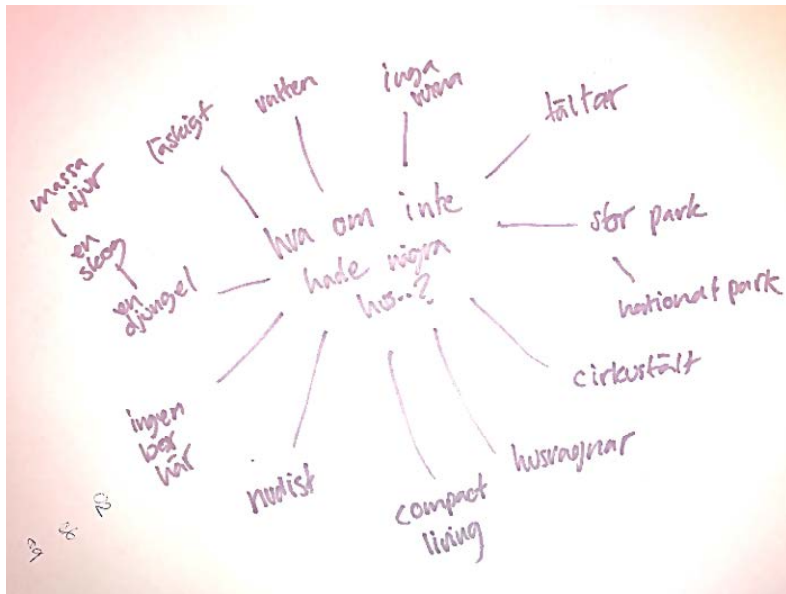 hva om inte
hade några
hus..?
vatten
inga
tältar
stor park
nationalpark
cirkustält
husvagnar
compact
living
nudist
ingen
bor
här
en
djungel
en
skog
massa
djur
läskigt